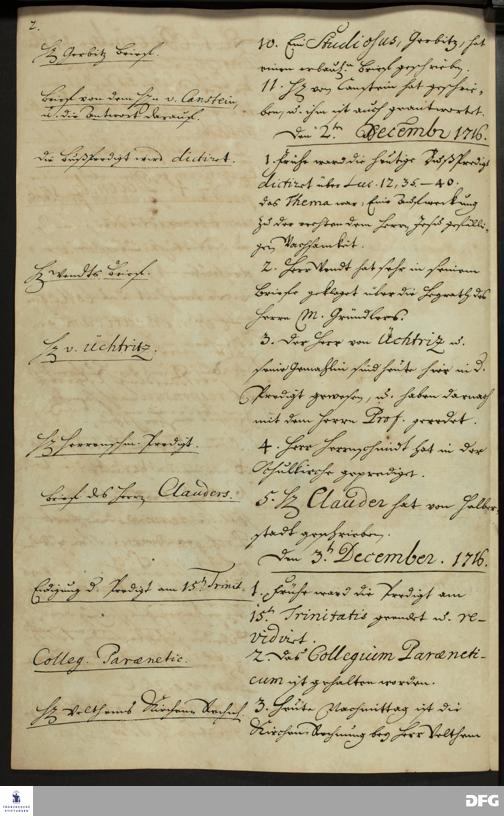 2.
H. Gerbitz Brief.
10. Ein Studiosus, Gerbitz, hat
einen erbaul. Brief geschrieben.
Brief von dem Hrn v. Canstein,
u. die Antwort darauf.
11. H. von Canstein hat geschrie-
ben, u. ihm ist auch geantwortet.
Den 2ten December 1716.
die Bußpredigt wird dictiret.
1. Frühe ward die heutige Bußpredigt
dictiret über Luc. 12, 35.–40.
das Thema war: Eine Aufweckung
zu der rechten dem Herrn Jesu gefälli-
gen Wachsamkeit.
H. Wendts Brief.
2. Herr Wendt hat sehr in seinem
Briefe geklaget über die Heyrath des
Herrn M. Gründlers.
H. v. Üchtritz.
3. Der Herr von Üchtriz u.
seine Gemahlin sind heute hier in d.
Predigt gewesen, u. haben darnach
mit dem Herrn Prof. geredet.
H. Herrnschm. Predigt.
4. Herr Herrnschmidt hat in der
Schulkirche geprediget.
Brief des Herrn Clauders.
5. H. Clauder hat von Halber-
stadt geschrieben.
Den 3ten December. 1716.
Endigung d. Predigt am 15ten Trinit.
1. Frühe ward die Predigt am
15ten Trinitatis geendet u. re-
vidiret.
Colleg. Parænetic.
2. Das Collegium Paræneti-
cum ist gehalten worden.
H. Velthems Kirchen-Rechn.
3. Heute Nachmittag ist die
Kirchen-Rechnung bey Herr Velthem
FRANCKESCHE
STIFTUNGEN
DFG